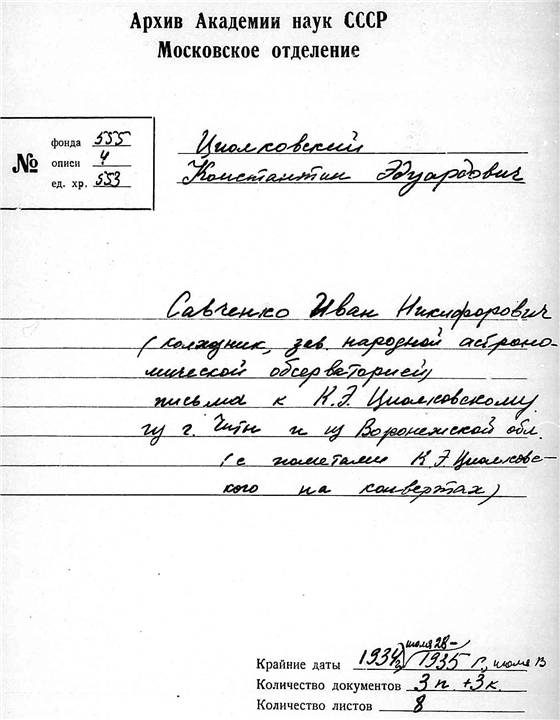 Архив Академии наук СССР
Московское отделение
№
фонда 555
описи 4
ед. хр. 553
Циолковский
Константин Эдуардович
Савченко Иван Никифорович
(колхозник, зав. народной астроно-
мической обсерваторией)
письма к К.Э. Циолковскому
из г. Читы и из Воронежской обл.
(с пометами К.Э. Циолковс-
кого на конвертах)
Крайние даты 1934, июля 28 – 1935 г., июля 13
Количество документов 3 п. + 3 к.
Количество листов 8